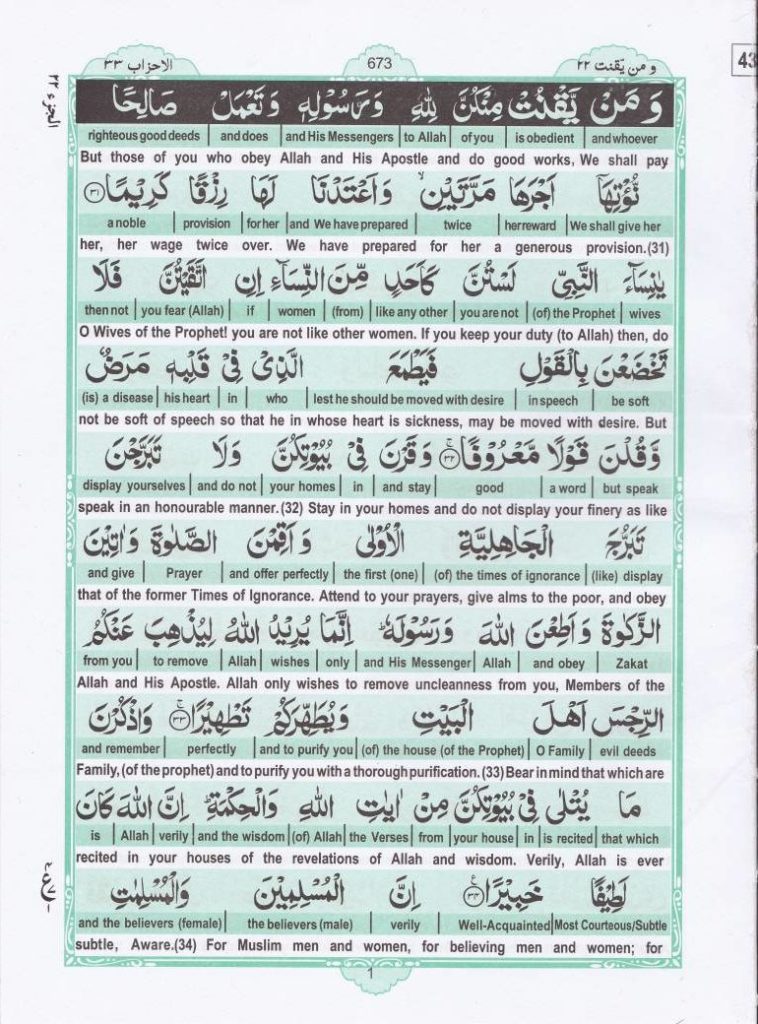 الاحزاب ٣٣ 673 و من يّقنت ٢٢
43
الجزء ٢٢
وَ مَنْ يَّقْنُتْ مِنْكُنَّ لِلّٰهِ وَ رَسُوْلِهٖ وَ تَعْمَلْ صَالِحًا
righteous good deeds | and does | and His Messengers | to Allah | of you | is obedient | and whoever
But those of you who obey Allah and His Apostle and do good works, We shall pay
نُّؤْتِهَاۤ اَجْرَهَا مَرَّتَيْنِ ۙ وَ اَعْتَدْنَا لَهَا رِزْقًا كَرِيْمًا ﴿٣١﴾
a noble | provision | for her | and We have prepared | twice | her reward | We shall give her
her, her wage twice over. We have prepared for her a generous provision.(31)
يٰنِسَآءَ النَّبِيِّ لَسْتُنَّ كَاَحَدٍ مِّنَ النِّسَآءِ اِنِ اتَّقَيْتُنَّ فَلَا
then not | you fear (Allah) | if | women | (from) | like any other | you are not | (of) the Prophet | wives
O Wives of the Prophet! you are not like other women. If you keep your duty (to Allah) then, do
تَخْضَعْنَ بِالْقَوْلِ فَيَطْمَعَ الَّذِيْ فِيْ قَلْبِهٖ مَرَضٌ
(is) a disease | his heart | in | who | lest he should be moved with desire | in speech | be soft
not be soft of speech so that he in whose heart is sickness, may be moved with desire. But
وَّ قُلْنَ قَوْلًا مَّعْرُوْفًا ﴿٣٢﴾ وَ قَرْنَ فِيْ بُيُوْتِكُنَّ وَ لَا تَبَرَّجْنَ
display yourselves | and do not | your homes | in | and stay | good | a word | but speak
speak in an honourable manner.(32) Stay in your homes and do not display your finery as like
تَبَرُّجَ الْجَاهِلِيَّةِ الْاُوْلٰى وَ اَقِمْنَ الصَّلٰوةَ وَ اٰتِيْنَ
and give | Prayer | and offer perfectly | the first (one) | (of) the times of ignorance | (like) display
that of the former Times of Ignorance. Attend to your prayers, give alms to the poor, and obey
الزَّكٰوةَ وَ اَطِعْنَ اللّٰهَ وَ رَسُوْلَهٗ ؕ اِنَّمَا يُرِيْدُ اللّٰهُ لِيُذْهِبَ عَنْكُمُ
from you | to remove | Allah | wishes | only | and His Messenger | Allah | and obey | Zakat
Allah and His Apostle. Allah only wishes to remove uncleanness from you, Members of the
الرِّجْسَ اَهْلَ الْبَيْتِ وَ يُطَهِّرَكُمْ تَطْهِيْرًا ﴿٣٣﴾ وَ اذْكُرْنَ
and remember | perfectly | and to purify you | (of) the house (of the Prophet) | O Family | evil deeds
Family, (of the prophet) and to purify you with a thorough purification. (33) Bear in mind that which are
مَا يُتْلٰى فِيْ بُيُوْتِكُنَّ مِنْ اٰيٰتِ اللّٰهِ وَ الْحِكْمَةِ ؕ اِنَّ اللّٰهَ كَانَ
is | Allah | verily | and the wisdom | (of) Allah | the Verses | from | your house | in | is recited | that which
recited in your houses of the revelations of Allah and wisdom. Verily, Allah is ever
لَطِيْفًا خَبِيْرًا ﴿٣٤﴾ اِنَّ الْمُسْلِمِيْنَ وَ الْمُسْلِمٰتِ
and the believers (female) | the believers (male) | verily | Well-Acquainted | Most Courteous/Subtle
subtle, Aware.(34) For Muslim men and women, for believing men and women; for
1